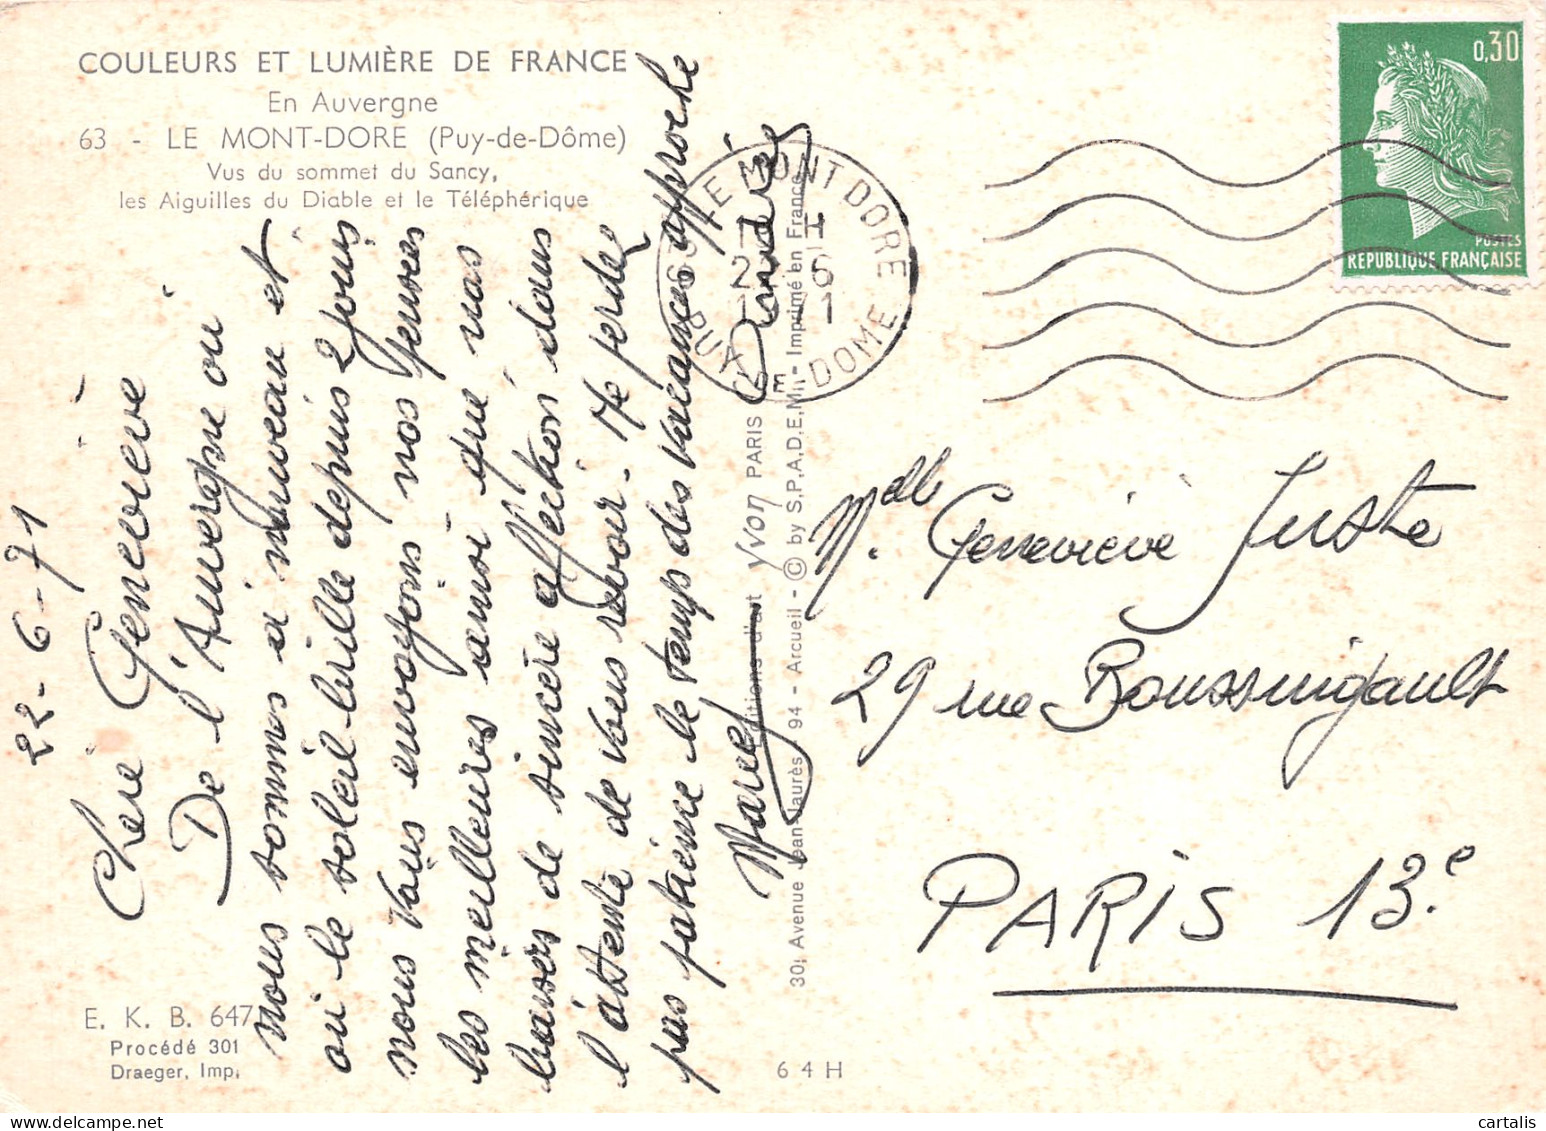 COULEURS ET LUMIÈRE DE FRANCE
En Auvergne
63 - LE MONT-DORE (Puy-de-Dôme)
Vus du sommet du Sancy,
les Aiguilles du Diable et le Téléphérique
22-6-71
Chère Geneviève
De l'Auvergne ou
nous sommes a nouveau et
ou le soleil brille depuis 2 jours
nous vous envoyons nos pensées
les meilleures ainsi que nos
baisers de sincère affection dans
l'attente de vous revoir. Ne perdez
pas patience le temps des vacances approche
Marcel Désirée
E. K. B. 647
Procédé 301
Draeger, Imp.
Editions d'art Yvon PARIS
30, Avenue Jean-Jaurès 94 - Arcueil - © by S.P.A.D.E.M. - Imprimé en France
64H
63 LE MONT DORE
H
22 6
1971
PUY DE DOME
0,30
POSTES
REPUBLIQUE FRANÇAISE
Mdlle Geneviève Juste
29 rue Boussingault
PARIS 13.e
© cartalis